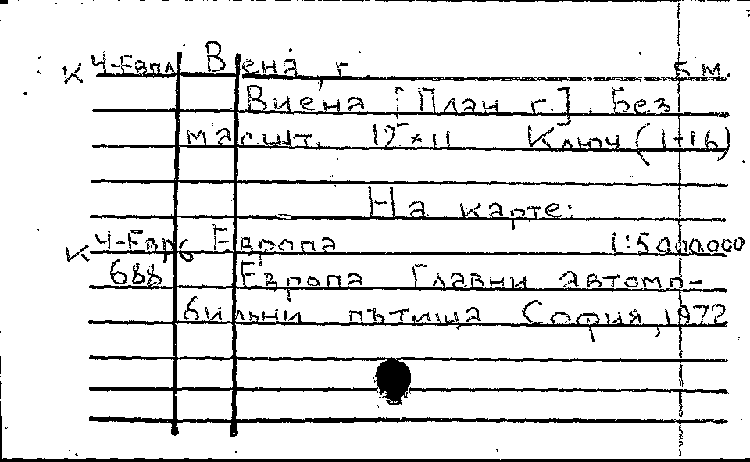 К Ч-Евпл Виена, г. 5 м.
Виена [План г.]. Без
масшт. 12×11 Ключ (1-16)
На карте:
К Ч-Евр6 Европа 1:5000000
688 Европа Главни автомо-
билни пътища София, 1972